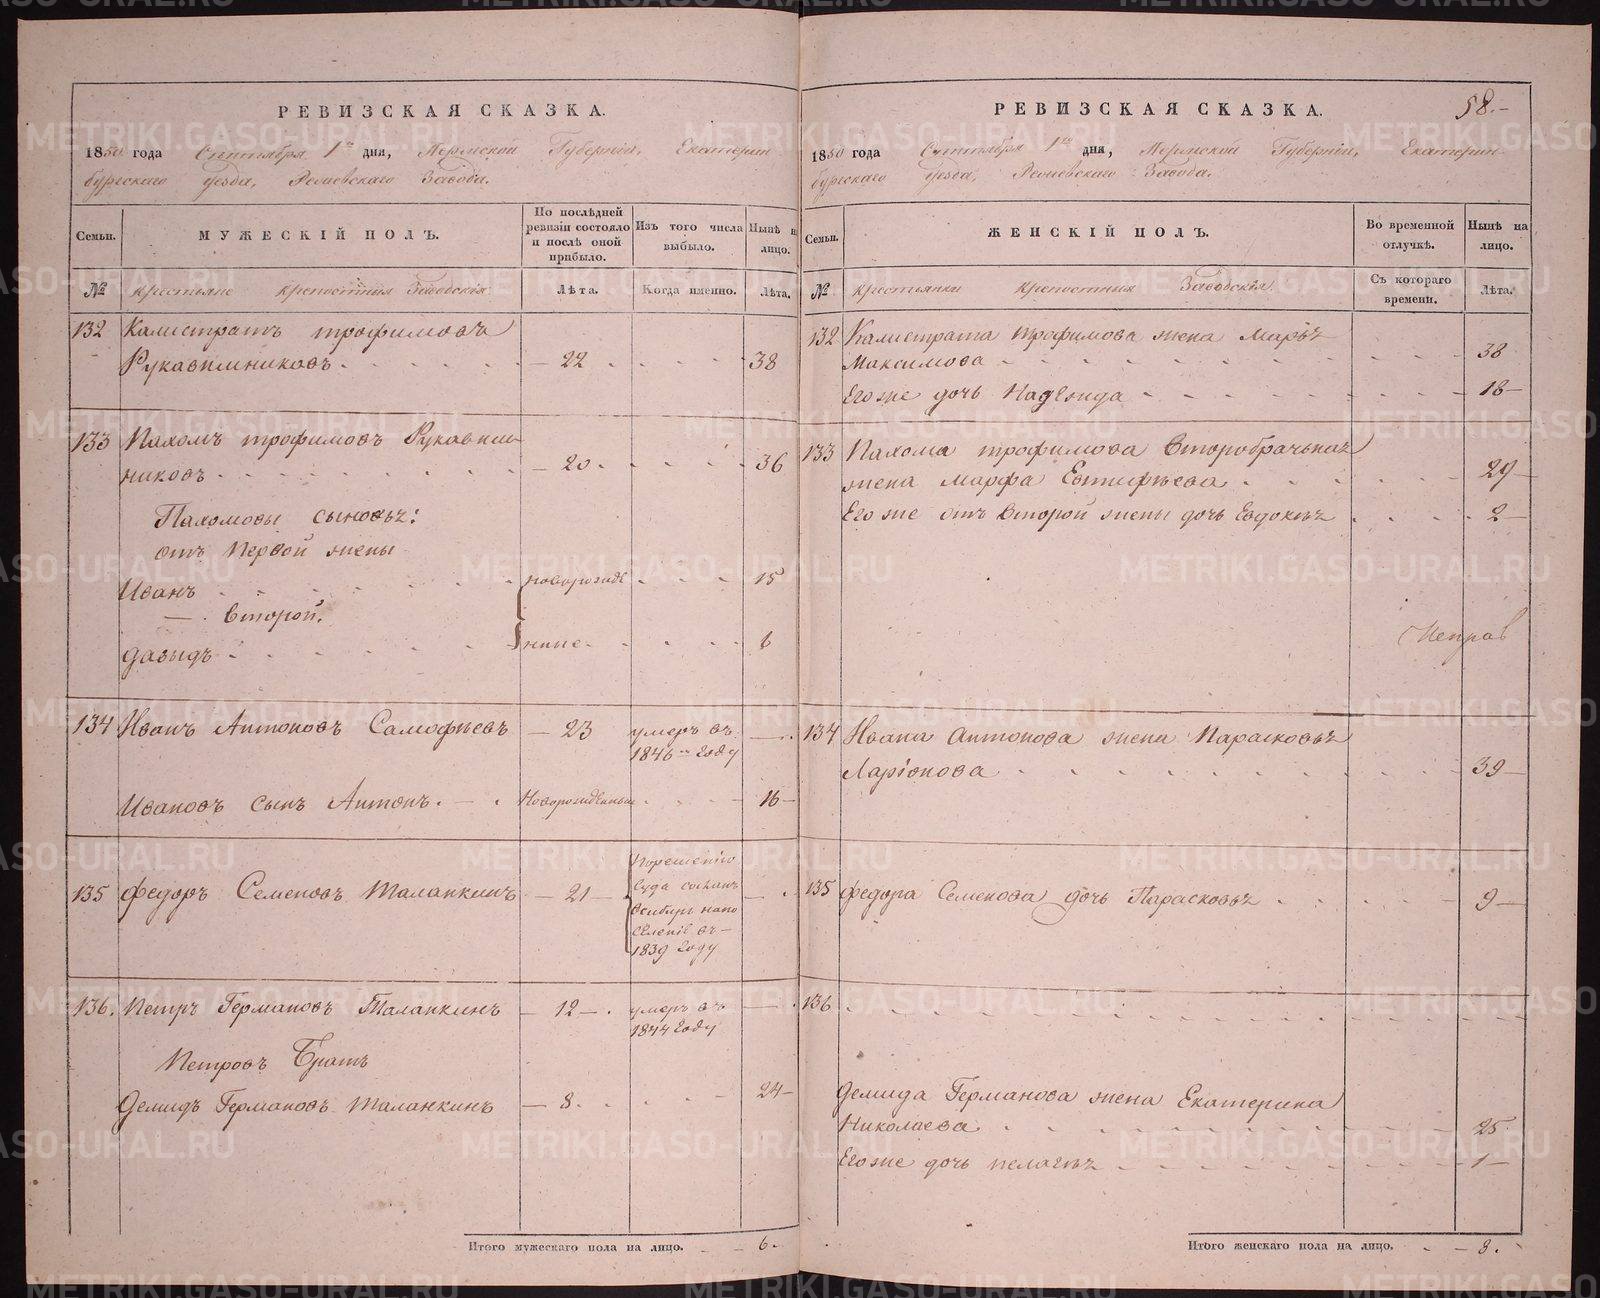 РЕВИЗСКАЯ СКАЗКА.
1850 года Сентября 1го дня, Пермской Губерніи, Екатерин
бургскаго уезда, Ревдинскаго Завода.
Семьи.
МУЖЕСКІЙ ПОЛЪ.
По послѣдней
ревизіи состояло
и послѣ оной
прибыло.
Изъ того числа
выбыло.
Нынѣ на
лицо.
№
крестьяне крепостныя Заводскія
Лѣта.
Когда именно.
Лѣта.
132 Калистратъ трофимовъ
Рукавишниковъ. — 22 38
133 Пахомъ трофимовъ Рукавиш
никовъ — 20 36
Пахомовы сыновья:
отъ первой жены
Иванъ новорожде 15
— Второй.
давыдъ нные 6
134 Иванъ Антоновъ Самофѣевъ — 23 умеръ въ —
1846м году
Ивановъ сынъ Антонъ. Новорожденный 16
135 федоръ Семеновъ Таланкинъ — 21 — порешенію
Суда сосланъ
Всибирь напо
селеніе въ
1839 году
136. Петръ Германовъ Таланкинъ — 12 — умеръ въ —
1844 году
Петровъ Братъ
Демидъ Германовъ Таланкинъ — 8. 24
Итого мужескаго пола на лицо. 6.
РЕВИЗСКАЯ СКАЗКА. 58.
1850 года Сентября 1го дня, Пермской Губерніи, Екатерин
бургскаго уезда, Завода.
Семьи.
ЖЕНСКІЙ ПОЛЪ.
Во временной
отлучкѣ.
Нынѣ на
лицо.
№
крестьянки крепостныя Заводскія
Съ котораго
времени.
Лѣта.
132 Калистрата трофимова жена Марья
Максимова 38
Его же дочь Надежда 18
133 Пахома трофимова Второбрачная
жена Марфа Евтифѣева 29
Его же отъ Второй жены дочь Евдокья 2
134 Ивана Антонова жена Парасковья
Ларіонова 39
135 федора Семенова дочь Парасковья 9
136
Демида Германова жена Екатерина
Николаева 25
Его же дочь пелагья 1
Итого женскаго пола на лицо. 8.
METRIKI.GASO-URAL.RU